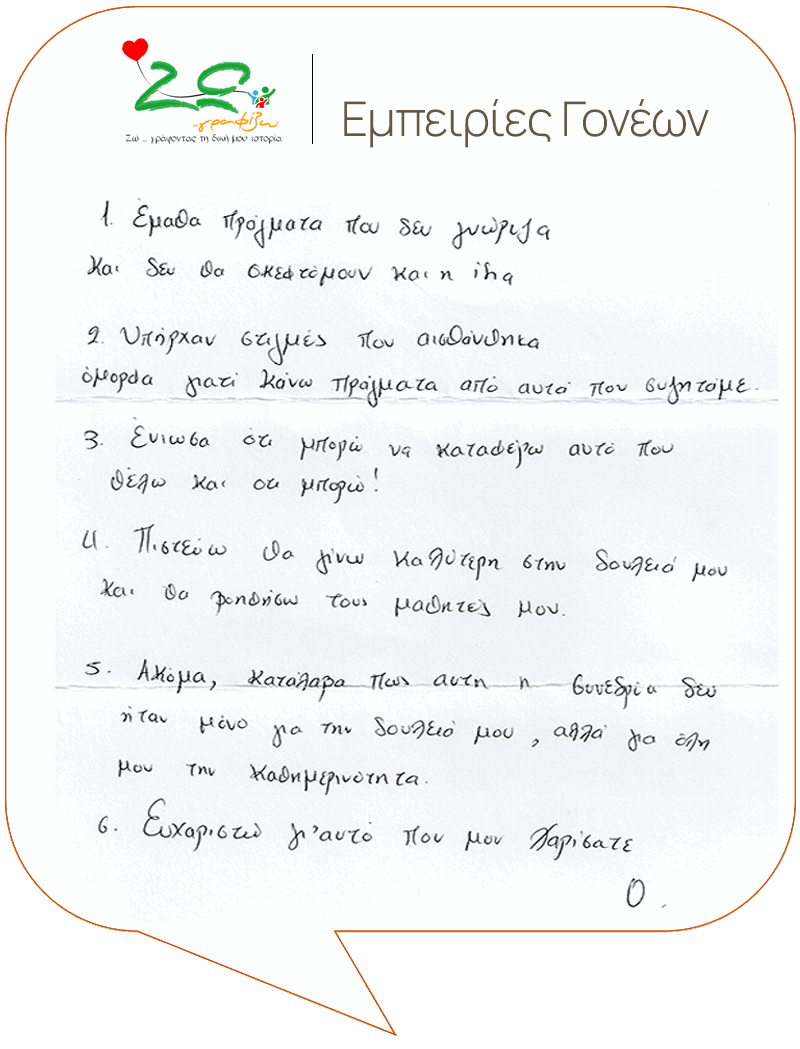 Ζω
γραφίζω
Ζω ... γράφοντας τη δική μου ιστορία
Εμπειρίες Γονέων
1. Έμαθα πράγματα που δεν γνώριζα
και δεν θα σκεφτόμουν και η ίδια
2. Υπήρχαν στιγμές που αισθάνθηκα
όμορφα γιατί κάνω πράγματα από αυτά που συζητάμε.
3. Ένιωσα ότι μπορώ να καταφέρω αυτό που
θέλω και οτι μπορώ!
4. Πιστεύω θα γίνω καλύτερη στην δουλειά μου
και θα βοηθήσω τους μαθητές μου.
5. Ακόμα, κατάλαβα πως αυτή η συνεδρία δεν
ήταν μόνο για την δουλειά μου, αλλά για όλη
μου την καθημερινότητα.
6. Ευχαριστώ γι'αυτό που μου χαρίσατε
Ο.